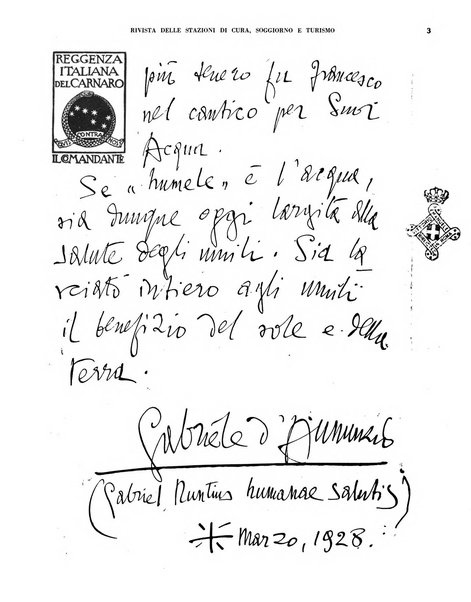 RIVISTA DELLE STAZIONI DI CURA, SOGGIORNO E TURISMO 3
REGGENZA
ITALIANA
DEL CARNARO
CONTRA
IL COMANDANTE
più tenero fu Francesco
nel cantico per Suor
Acqua.
Se „humele„ è l'acqua,
sia dunque oggi largita alla
salute degli umili. Sia la
sciato intiero agli umili
il benefizio del sole e della
terra.
Gabriele d'Annunzio
(Gabriel Nuntius humanae salutis)
Marzo, 1928.